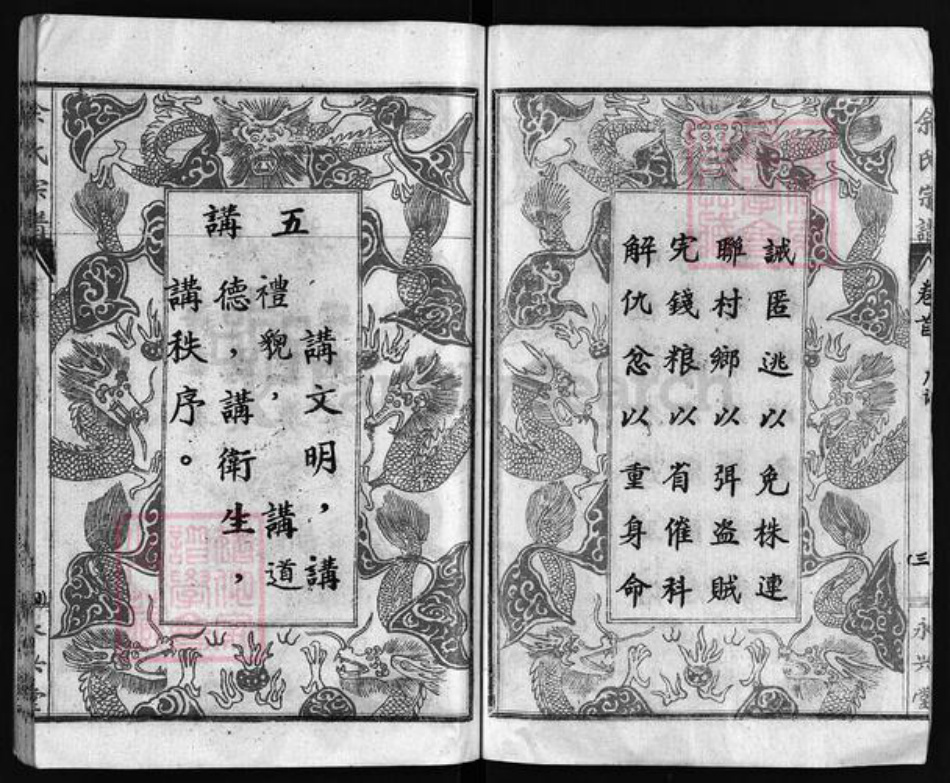 誡匿逃以免株連
聯村鄉以弭盗賊
完錢粮以省催科
解仇忿以重身命
余氏宗譜
卷首
三
永兴堂
五講
講文明，講
禮貌，講道
德，講衛生，
講秩序。